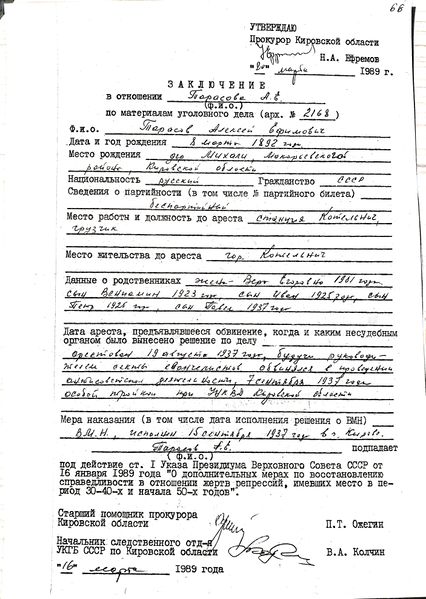 66
УТВЕРЖДАЮ
Прокурор Кировской области
Н.А. Ефремов
"20" марта 1989 г.
ЗАКЛЮЧЕНИЕ
в отношении Тарасова А.Е.
(ф.и.о.)
по материалам уголовного дела (арх. № 2168)
Ф.и.о. Тарасов Алексей Ефимович
Дата и год рождения 8 марта 1892 года
Место рождения дер. Михали Макарьевского
района, Кировской области
Национальность русский Гражданство СССР
Сведения о партийности (в том числе № партийного билета)
беспартийный
Место работы и должность до ареста станция Котельнич,
грузчик
Место жительства до ареста гор. Котельнич
Данные о родственниках жена - Вера Егоровна 1901 года
сын Вениамин 1923 года, сын Иван 1925 года, сын
Петр 1928 года, сын Павел 1937 года
Дата ареста, предъявлявшееся обвинение, когда и каким несудебным
органом было вынесено решение по делу
арестован 19 августа 1937 года, будучи руководи-
телем секты евангелистов обвинялся в проведении
антисоветской деятельности, 7 сентября 1937 года
особой тройкой при УНКВД Кировской области
Мера наказания (в том числе дата исполнения решения о ВМН)
В.М.Н., исполнен 15 сентября 1937 года в г. Кирове.
Тарасов А.Е. подпадает
(ф.и.о.)
под действие ст. I Указа Президиума Верховного Совета СССР от
16 января 1989 года "О дополнительных мерах по восстановлению
справедливости в отношении жертв репрессий, имевших место в пе-
риод 30-40-х и начала 50-х годов".
Старший помощник прокурора
Кировской области П.Т. Ожегин
Начальник следственного отд-я
УКГБ СССР по Кировской области В.А. Колчин
"16" марта 1989 года